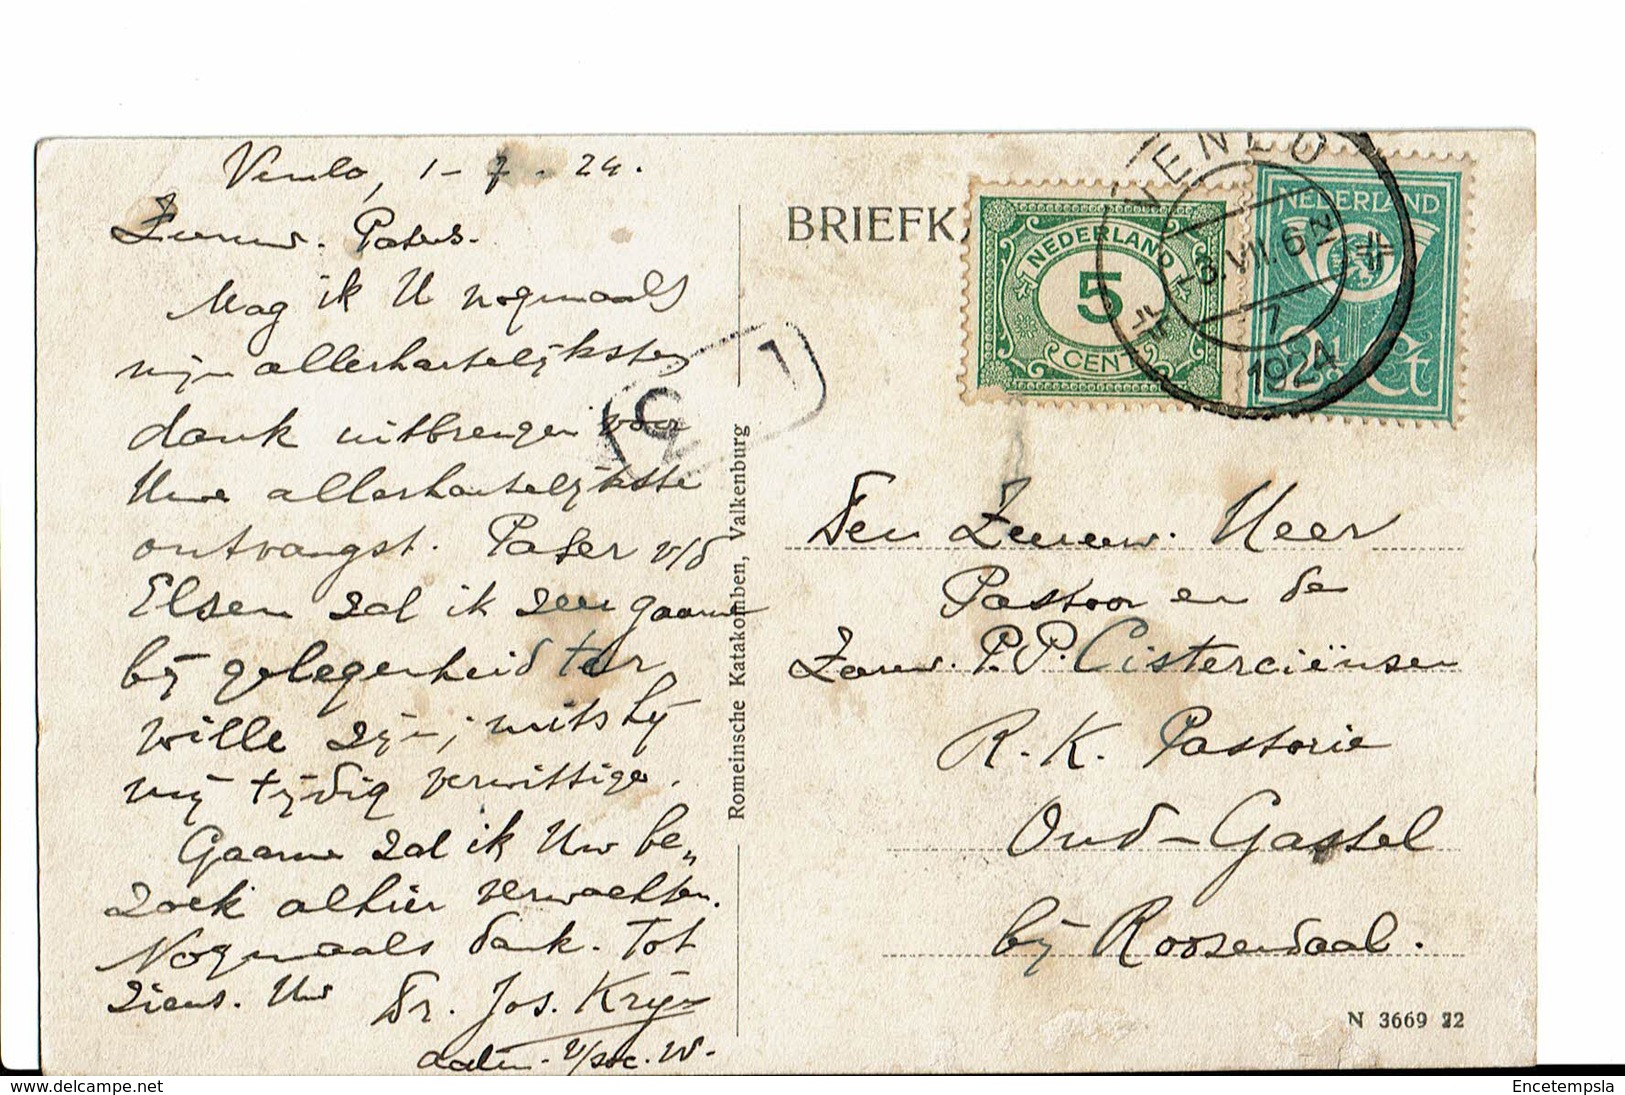 Venlo, 1-7-24.
Zeereerw. Paters.
Mag ik U nogmaals
mijn allerhartelijksten
dank uitbrengen voor
Uwe allerhartelijkste
ontvangst. Pater v/d
Elsen zal ik zeer gaarne
bij gelegenheid ter
wille zijn; mits hij
mij tijdig verwittige.
Gaarne zal ik Uw be„
zoek alhier verwachten.
Nogmaals dank. Tot
ziens. Uw Dr. Jos. Krijn
v/soc. W.
Romeinsche Katakomben, Valkenburg
BRIEFK
NEDERLAND
5
CENT
NEDERLAND
2½ Ct
VENLO
-3.VII.6-7N
1924
Den Zeereerw. Heer
Pastoor en de
Zeereerw. P.P. Cisterciënsen
R.K. Pastorie
Oud-Gastel
bij Roosendaal.
N 3669 22
Encetempsla